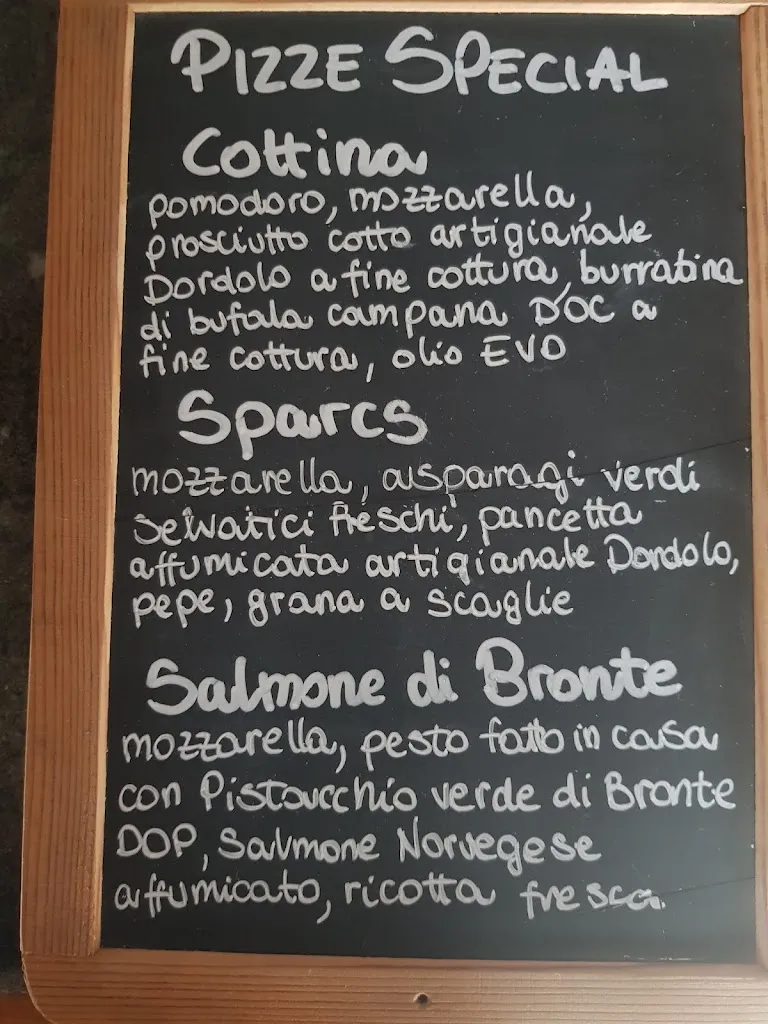 PIZZE SPECIAL
Cottina
pomodoro, mozzarella,
prosciutto cotto artigianale
Dordolo a fine cottura, burratina
di bufala campana DOC a
fine cottura, olio EVO
Sparcs
mozzarella, asparagi verdi
selvatici freschi, pancetta
affumicata artigianale Dordolo,
pepe, grana a scaglie
Salmone di Bronte
mozzarella, pesto fatto in casa
con Pistacchio verde di Bronte
DOP, Salmone Norvegese
affumicato, ricotta fresca.